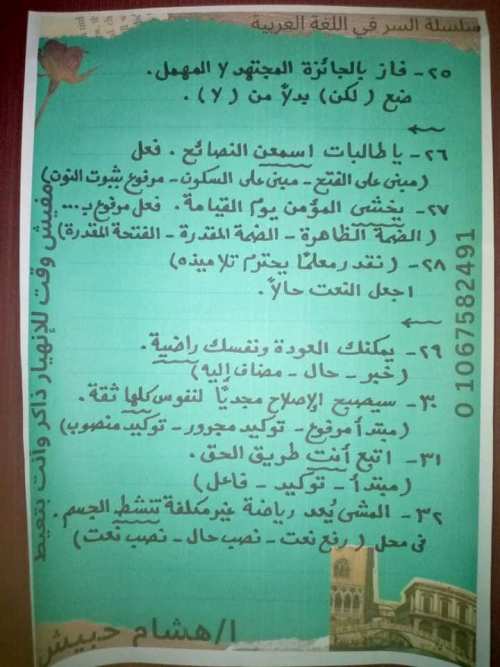 سلسلة السر في اللغة العربية
٢٥- فاز بالجائزة المجتهد لا المهمل.
ضع (لكن) بدلاً من (لا).
٢٦- يا طالبات اسمعن النصائح. فعل
(مبنى على الفتح - مبنى على السكون - مرفوع بثبوت النون)
٢٧- يخشى المؤمن يوم القيامة. فعل مرفوع بـ...
(الضمة الظاهرة - الضمة المقدرة - الفتحة المقدرة)
٢٨- (نقدر معلمًا يحترم تلاميذه)
اجعل النعت حالاً.
٢٩- يمكنك العودة ونفسك راضية.
(خبر - حال - مضاف إليه)
٣٠- سيصبح الإصلاح مجديًا لنفوس كلها ثقة.
(مبتدأ مرفوع - توكيد مجرور - توكيد منصوب)
٣١- اتبع أنت طريق الحق.
(مبتدأ - توكيد - فاعل)
٣٢- المشى يُعد رياضة غير مكلفة تنشط الجسم.
فى محل (رفع نعت - نصب حال - نصب نعت)
مفيش وقت للإنهيار ذاكر وأنت بتعيط
0 1067582491
ا/هشام حبيش